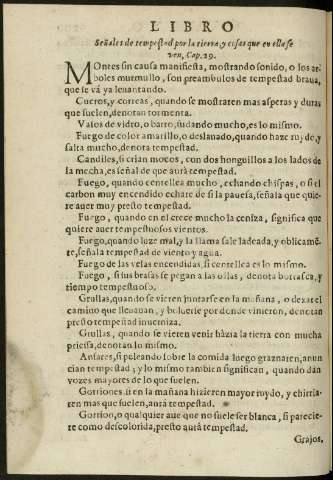 LIBRO
Señales de tempestad por la tierra, y cosas que en ella se
ven, Cap. 29.
MOntes sin causa manifiesta, mostrando sonido, o los ar
boles murmullo, son preambulos de tempestad braua,
que se vá ya leuantando.
Cueros, y correas, quando se mostraren mas asperas y duras
que suelen, denotan tormenta.
Vasos de vidro, o barro, sudando mucho, es lo mismo.
Fuego de color amarillo, o deslauado, quando haze ruydo, y
salta mucho, denota tempestad.
Candiles, si crian mocos, con dos honguillos a los lados de
la mecha, es señal de que aurà tempestad.
Fuego, quando centellea mucho, echando chispas, o si el
carbon muy encendido echare de si la pauesa, señala que quie
re auer muy presto tempestad.
Fuego, quando en el crece mucho la ceniza, significa que
quiere auer tempestuosos vientos.
Fuego, quando luze mal, y la llama sale ladeada, y oblicamẽ
te, señala tempestad de viento y agua.
Fuego de las velas encendidas, si centellea es lo mismo.
Fuego, si sus brasas se pegan a las ollas, denota burrasca, y
tiempo tempestuoso.
Grullas, quando se vieren juntarse en la mañana, o dexar el
camino que lleuauan, y boluerse por donde vinieron, denotan
presto tempestad inuerniza.
Grullas, quando se vieren venir hàzia la tierra con mucha
priessa, denotan lo mismo.
Ansares, si peleando sobre la comida luego graznaren, anun
cian tempestad; y lo mismo tambien significan, quando dàn
vozes mayores de lo que suelen.
Gorriones si en la mañana hizieren mayor ruydo, y chirria-
ren mas que suelen, aurà tempestad.
Gorrion, o qualquier aue que no suele ser blanca, si parecie-
re como descolorida, presto aurà tempestad.
Grajos,